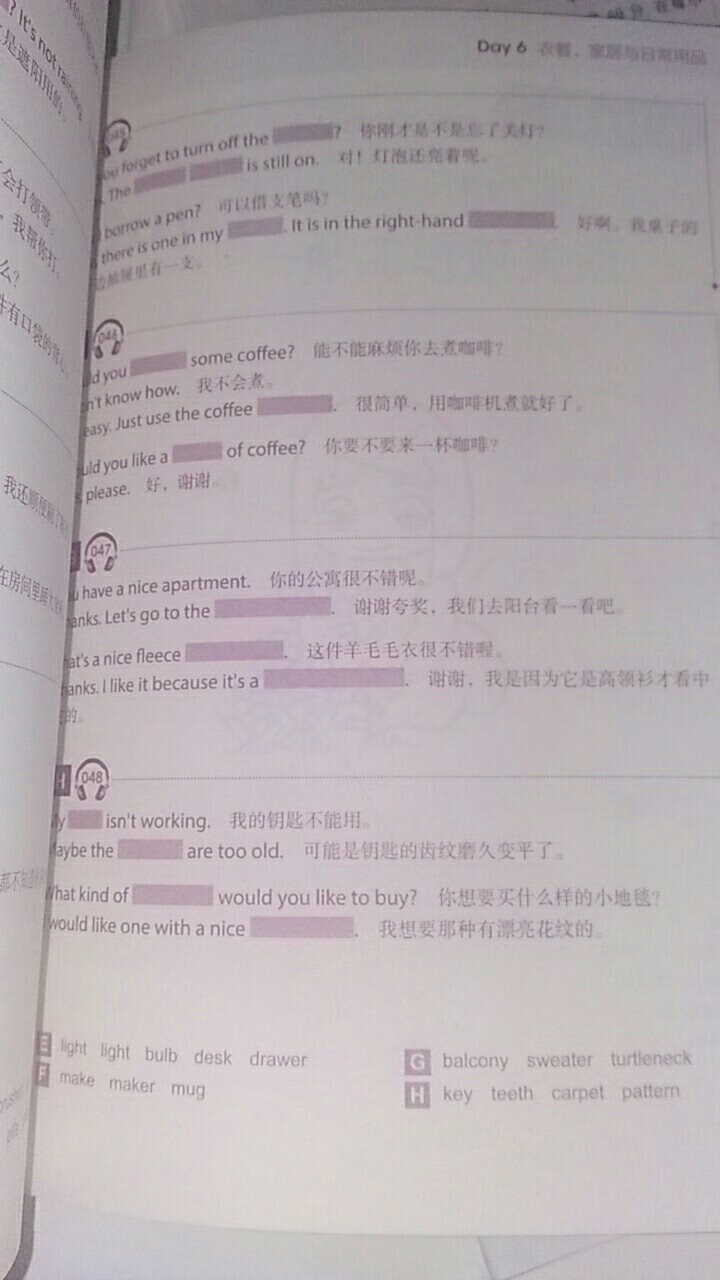 ? It's not raining.
是遮阳用的。
会打领带。
我帮你打。
么？
件有口袋的背心
我还顺便刷了
在房间里睡大
都不知道
Day 6 衣着、家居与日常用品
ou forget to turn off the ? 你刚才是不是忘了关灯？
The is still on. 对！灯泡还亮着呢。
borrow a pen? 可以借支笔吗？
there is one in my . It is in the right-hand . 好啊。我桌子的
边抽屉里有一支。
046
ld you some coffee? 能不能麻烦你去煮咖啡？
n't know how. 我不会煮。
easy. Just use the coffee . 很简单，用咖啡机煮就好了。
uld you like a of coffee? 你要不要来一杯咖啡？
s, please. 好，谢谢。
047
u have a nice apartment. 你的公寓很不错呢。
anks. Let's go to the . 谢谢夸奖，我们去阳台看一看吧。
at's a nice fleece . 这件羊毛毛衣很不错喔。
hanks. I like it because it's a . 谢谢，我是因为它是高领衫才看中
的。
H 048
My isn't working. 我的钥匙不能用。
Maybe the are too old. 可能是钥匙的齿纹磨久变平了。
What kind of would you like to buy? 你想要买什么样的小地毯？
I would like one with a nice . 我想要那种有漂亮花纹的。
E light light bulb desk drawer
F make maker mug
G balcony sweater turtleneck
H key teeth carpet pattern